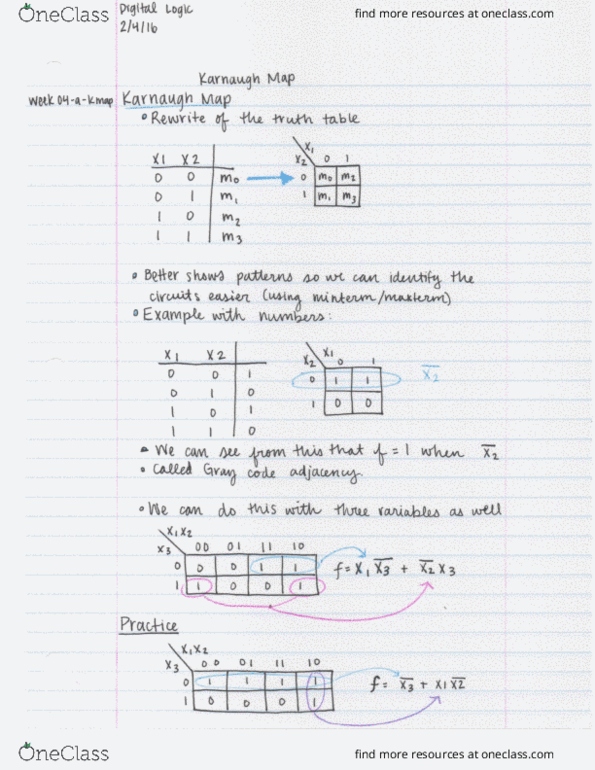 OneClass
Digital Logic
find more resources at oneclass.com
2/4/16
Karnaugh Map
Week 04-a-kmap Karnaugh Map
• Rewrite of the truth table
X1
X1 X2 X2 0 1
0 0 m0 0 m0 m2
0 1 m1 1 m1 m3
1 0 m2
1 1 m3
• Better shows patterns so we can identify the
circuits easier (using minterm/maxterm)
• Example with numbers:
X1 X2 X2 X1 0 1
0 0 1 0 1 1 X̅2̅
0 1 0 1 0 0
1 0 1
1 1 0
• We can see from this that f = 1 when X̅2̅
• Called Gray code adjacency.
• We can do this with three variables as well
X1X2
X3 00 01 11 10
0 0 0 1 1 f= X1 X̅3̅ + X̅2̅ X3
1 1 0 0 1
Practice
X1X2
X3 00 01 11 10
0 1 1 1 1 f= X̅3̅ + X1 X̅2̅
1 0 0 0 1
OneClass
find more resources at oneclass.com